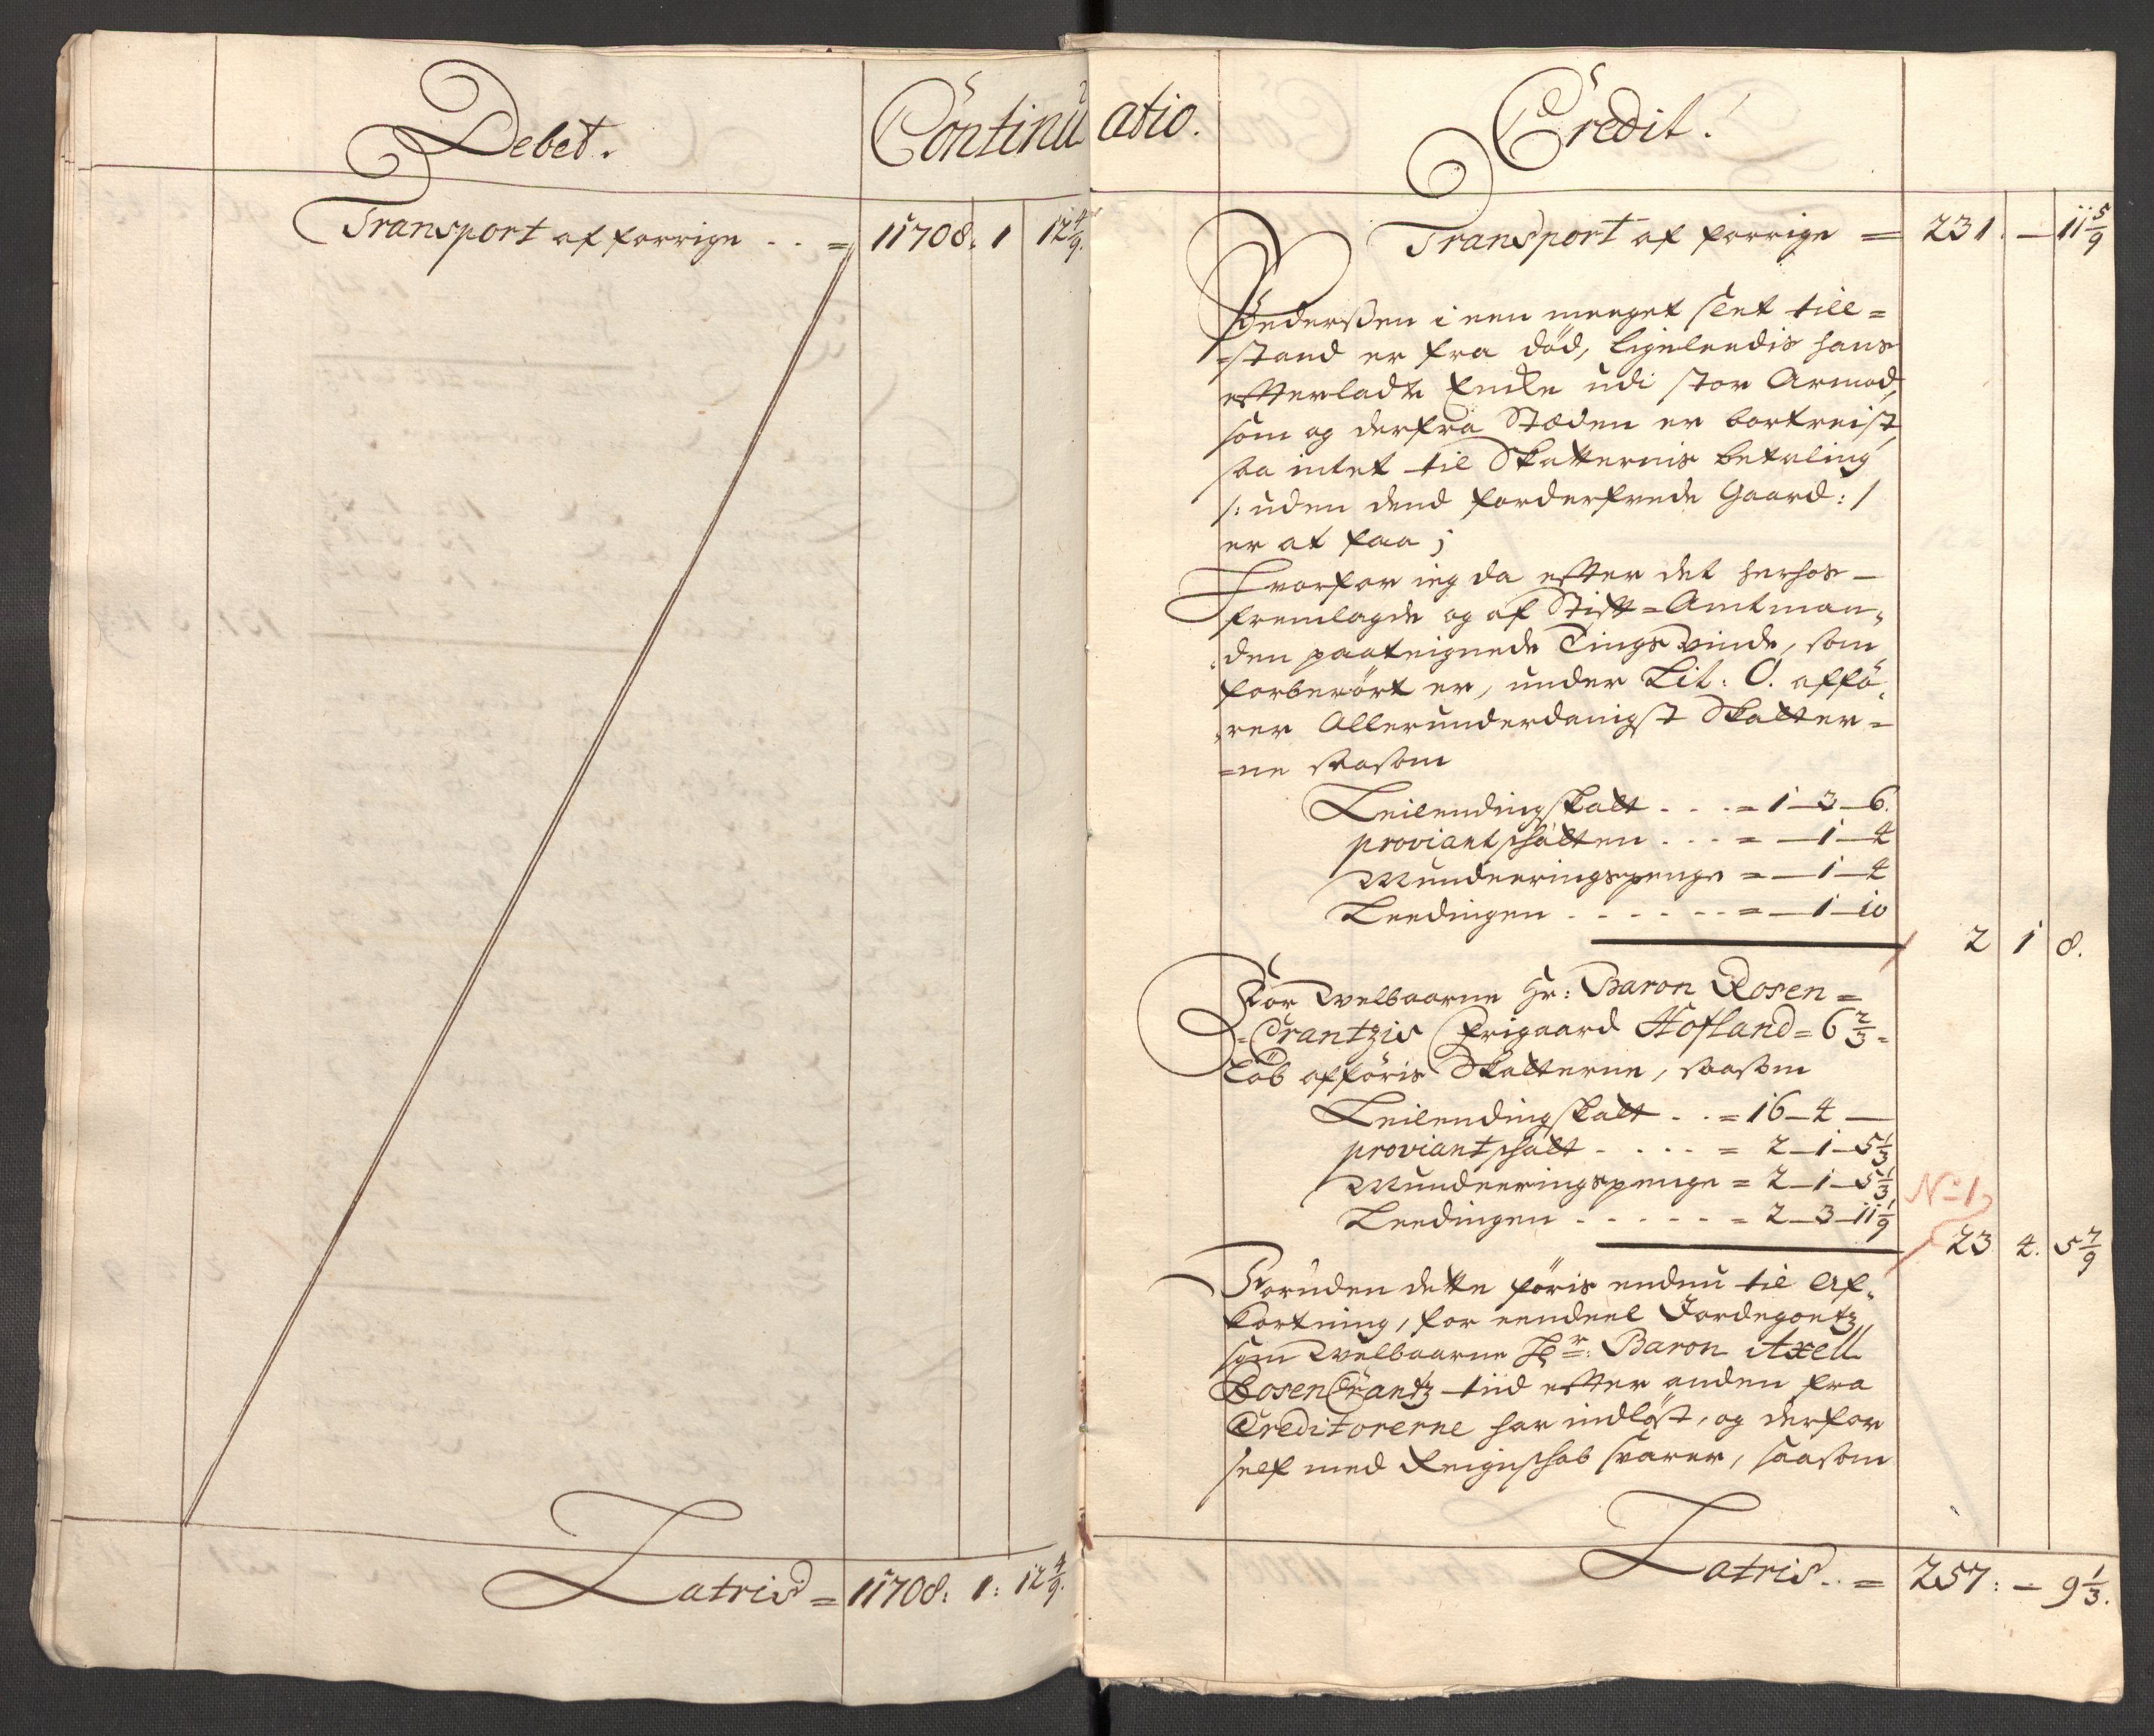 Debet.
Continu
Transport af forrige . . = 11708. 1 12 4/9.
Latris = 11708: 1: 12 4/9.
atio.
Credit.
Transport af forrige = 231. — 11 5/9
Pederßen i een meeget slet till=
=stand er fra död, ligeleedis hans
efterladte Encke udi stor Armod,
som og derfra Stæden er bortreist,
saa intet til Skatternis betaling
/: uden dend forderfvede Gaard: /
er at faa;
Hvorfor ieg da efter det herhos
fremlagde og af Stift=Amtman,
,den paateignede Tings vinde, som
forberört er, under Lit: O. affö,
,rer Allerunderdanigst Skatter=
=ne saasom
Leilendingskatt . . . = 1—3—6.
proviantschatten . . . = —1—4
Munderingspenge = —1—4
Leedingen . . . . . . = —1—10
2 1 8.
For Welbaarne Hr: Baron Rosen=
=Crantzis frigaard Hofland = 6 2/3 =
Löb afföris Skatterne, saasom
Leilendingskatt . . = 16—4—
proviantschatt . . . . = 2—1—5 1/3
Munderingspenge = 2—1—5 1/3
No 1
Leedingen . . . . . . = 2—3—11 1/9
23 4. 5 7/9
Foruden dette föris endnu til Af,
kortning, for eendeel Jordegoetz,
som Welbaarne Hr: Baron Axell
RosenCrantz tiid efter anden fra
Creditorerne har indlöst, og derfor
self med Reignschab svarer, saasom
Latris . . = 257: — 9 1/3.